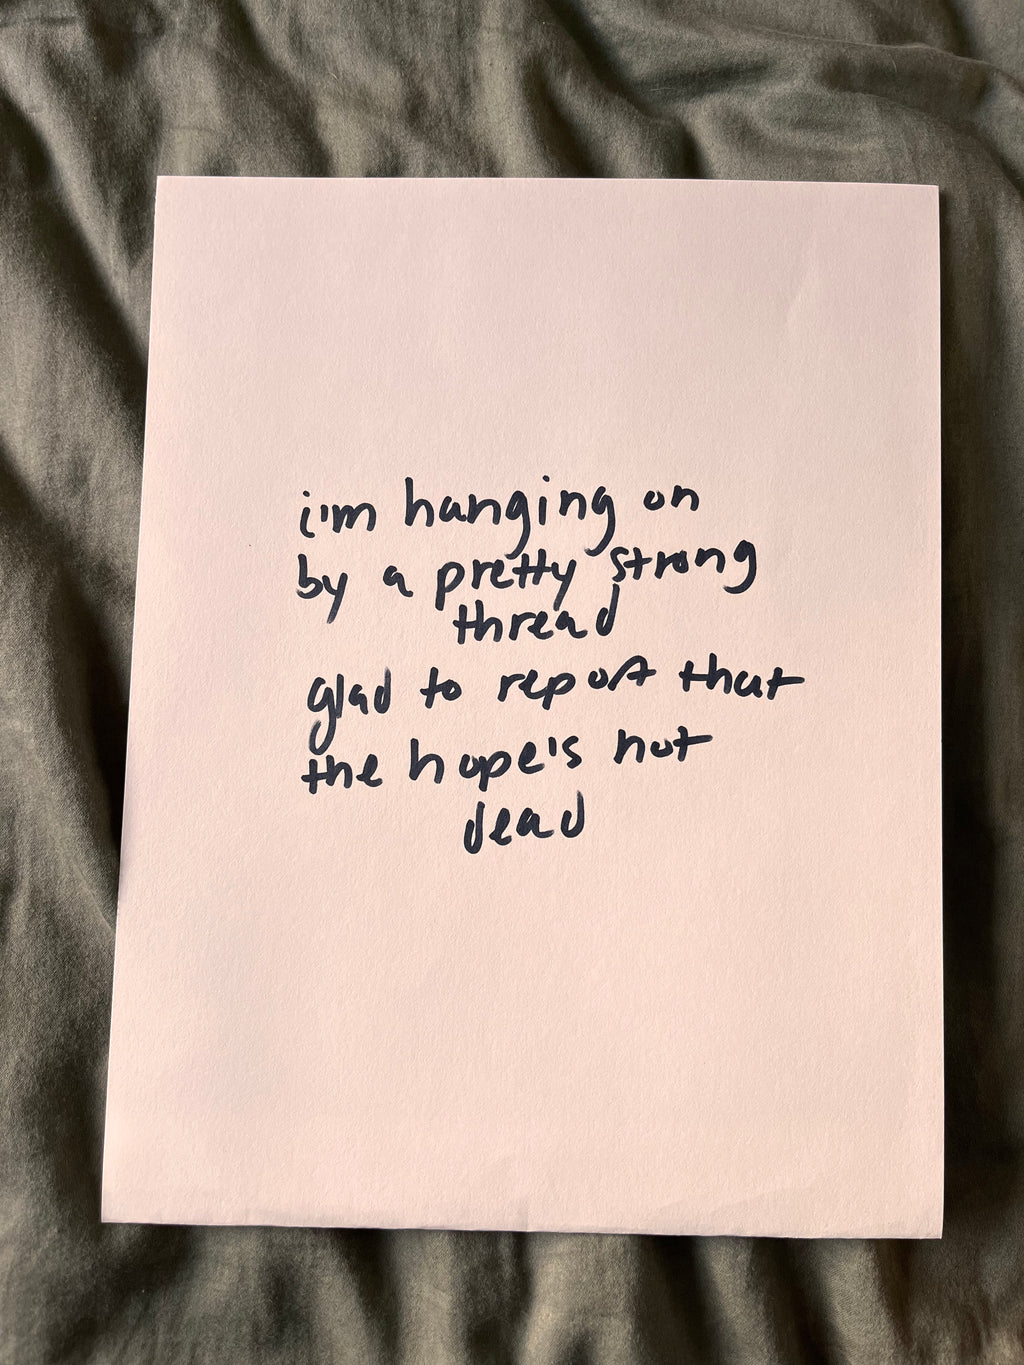 i'm hanging on
by a pretty strong
thread
glad to report that
the hope's not
dead